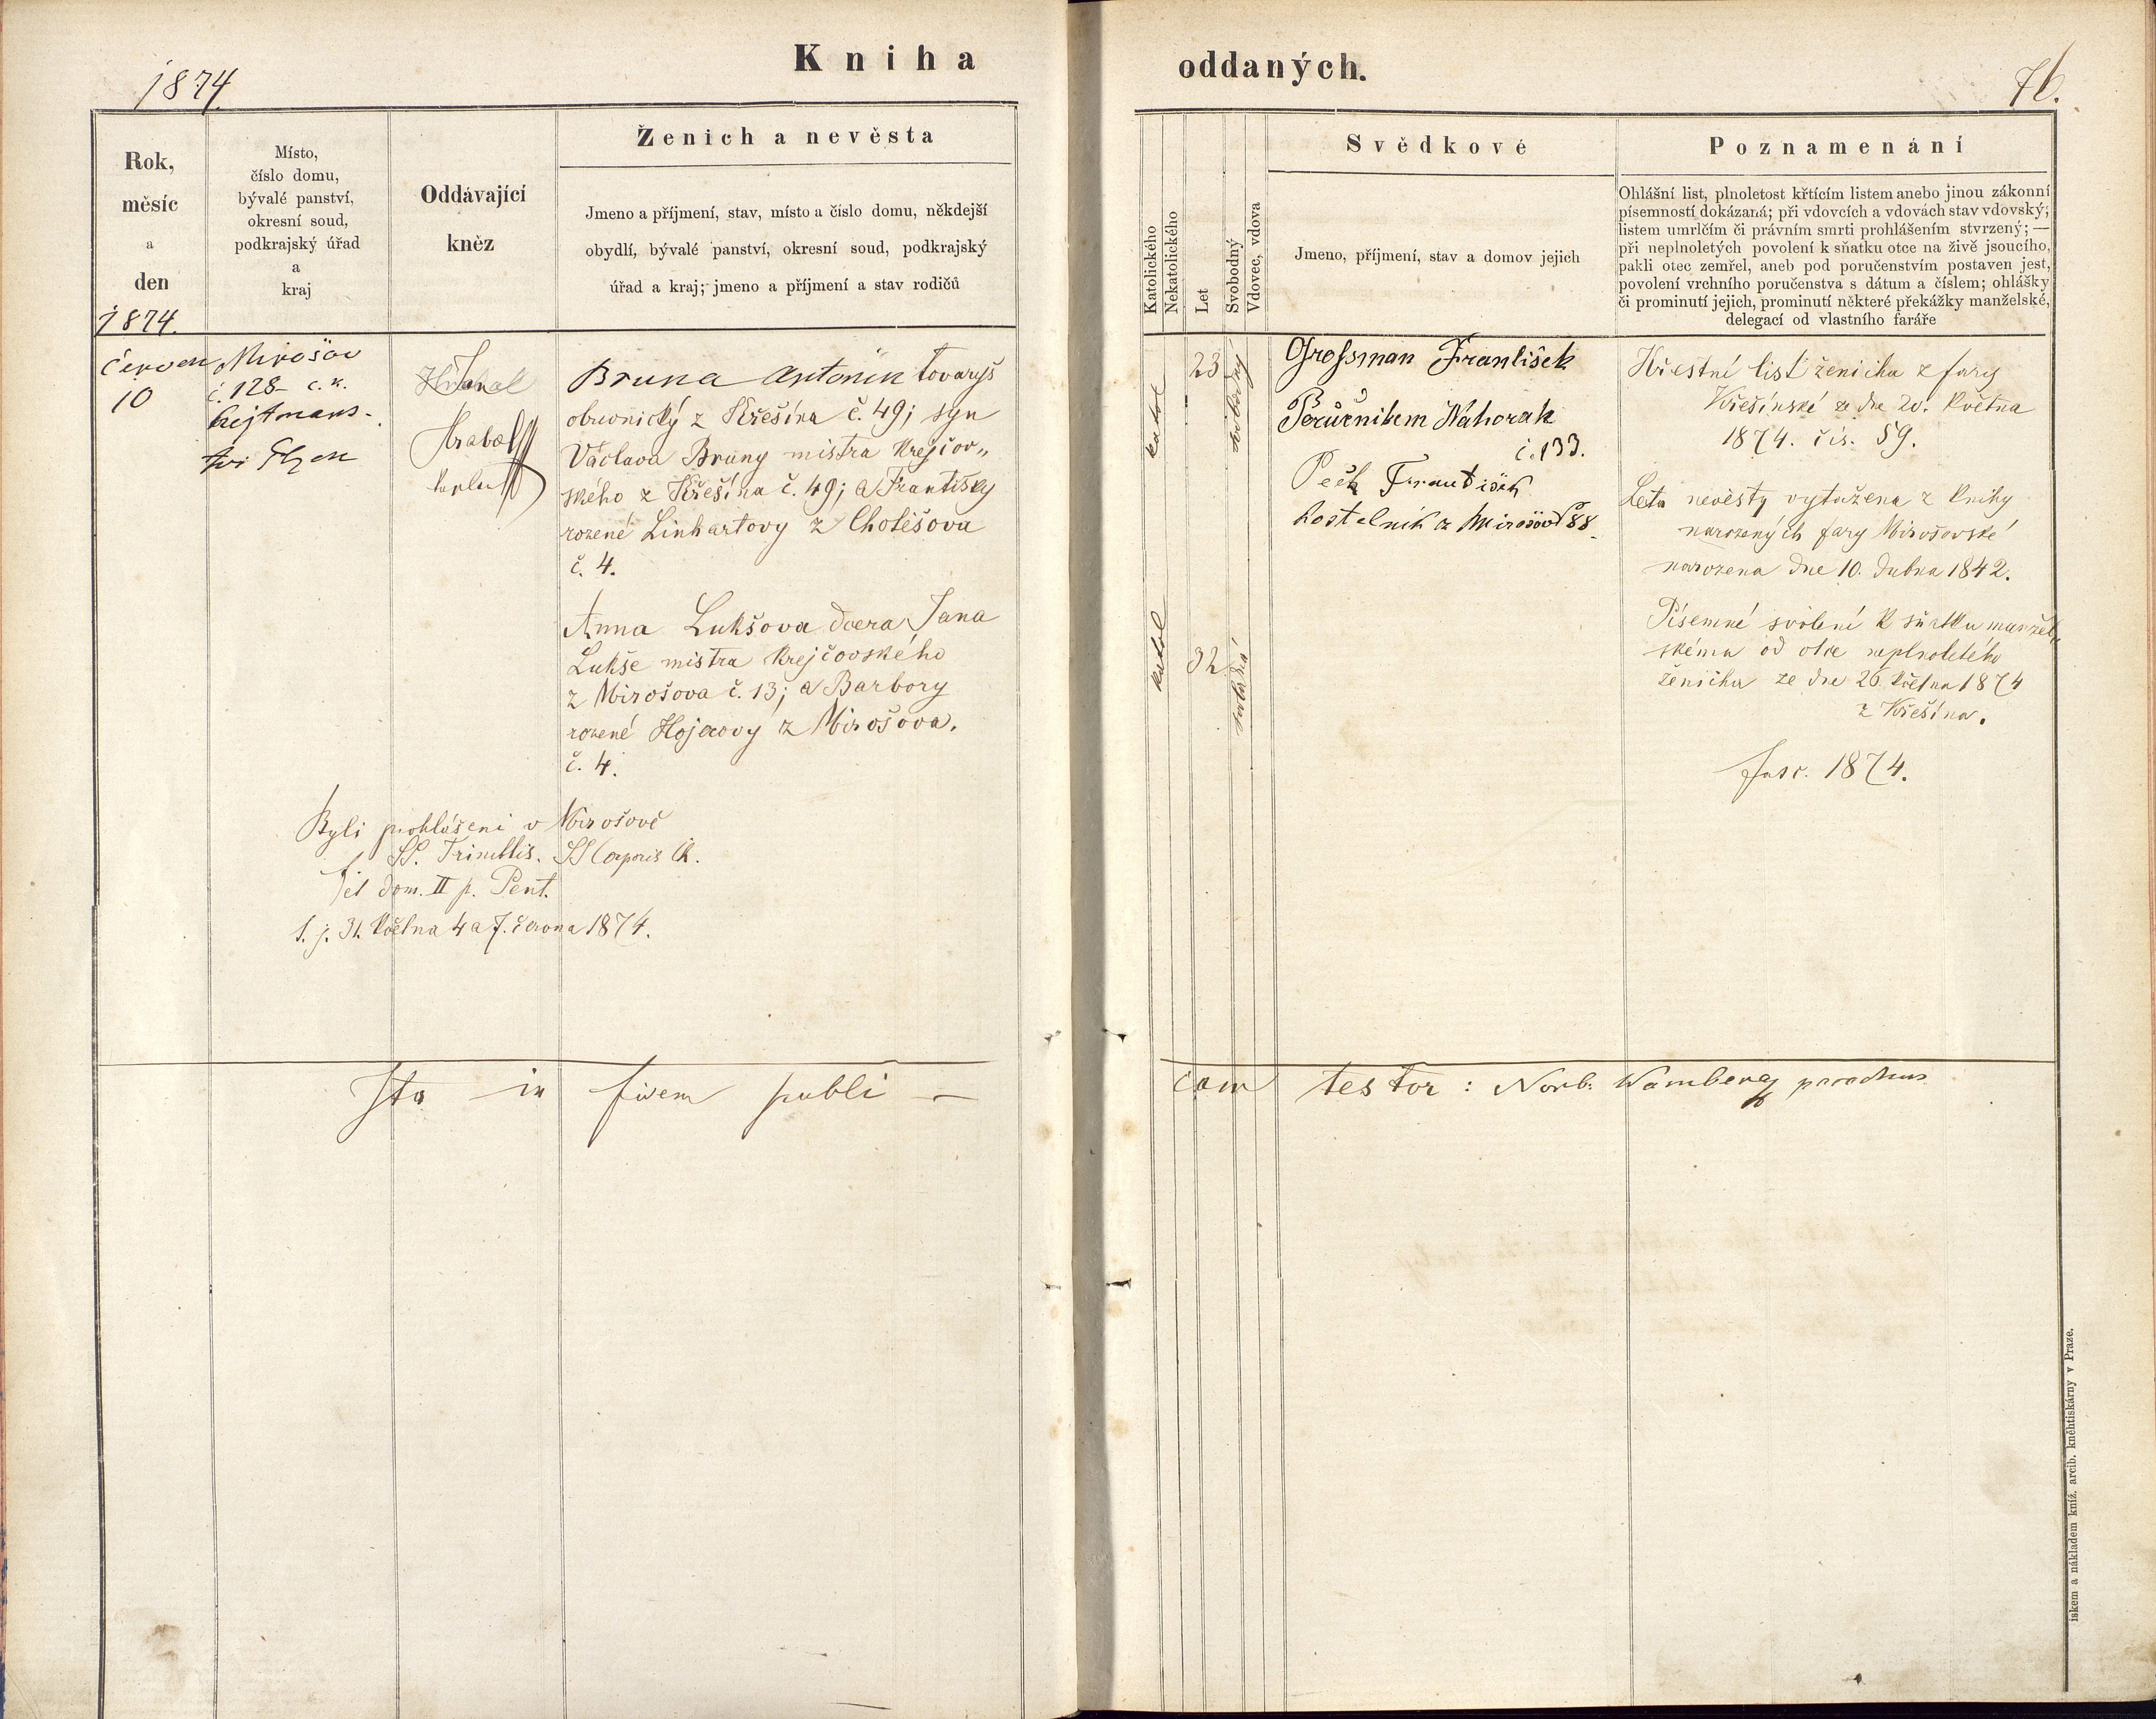 1874
Kniha
oddaných.
76.
Rok,
měsíc
a
den
1874.
Místo,
číslo domu,
bývalé panství,
okresní soud,
podkrajský úřad
a
kraj
Oddávající
kněz
Ženich a nevěsta
Jmeno a příjmení, stav, místo a číslo domu, někdejší
obydlí, bývalé panství, okresní soud, podkrajský
úřad a kraj; jmeno a příjmení a stav rodičů
Katolického
Nekatolického
Let
Svobodný
Vdovec, vdova
Svědkové
Jmeno, příjmení, stav a domov jejich
Poznamenání
Ohlášní list, plnoletost křtícím listem anebo jinou zákonní
písemností dokázaná; při vdovcích a vdovách stav vdovský,
listem umrlčím či právním smrti prohlášením stvrzený; —
při neplnoletých povolení k sňatku otce na živě jsoucího,
pakli otec zemřel, aneb pod poručenstvím postaven jest,
povolení vrchního poručenstva s dátum a číslem; ohlášky
či prominutí jejich, prominutí některé překážky manželské,
delegací od vlastního faráře
Červen
10
Mirošov
č. 128 c. k.
hejtmans-
tví
Hrabal
kaplan
Bruna Antonín tovaryš
obuvnický z Křešína č. 49; syn
Václava Bruny mistra krejčov„
ského z Křešína č. 49; a Františky
rozené Linhartovy z Cholěšova
č. 4.
Anna Lukšova dcera Jana
Lukše mistra krejčovského
z Mirošova č. 13; a Barbory
rozené Hojerovy z Mirošova.
č. 4.
Byli prohlášeni v Mirošově
SS. Trinittis. SS Corporis Ch.
et dom. II p. Pent.
t. j. 31. května 4 a 7. června 1874.
katol
23
svobodný
katol
32
svobodná
Grossman František
Poručníkem Nahorak
č. 133.
Pech František
kostelník z Mirošova 88
Křestní list ženicha z fary
Křešínské ze dne 20. května
1874. čis. 59.
Leta nevěsty vytažena z knihy
narozených fary Mirošovské
narozena dne 10. dubna 1842.
Písemné svolení k sňatku manžel„
skému od otce neplnoletého
ženicha ze dne 26. května 1874
z Křešína.
fasc. 1874.
Ita in fidem publi —
cam testor: Norb. Wamberg parochus
iskem a nákladem kníž. arcib. kněhtiskárny v Praze.